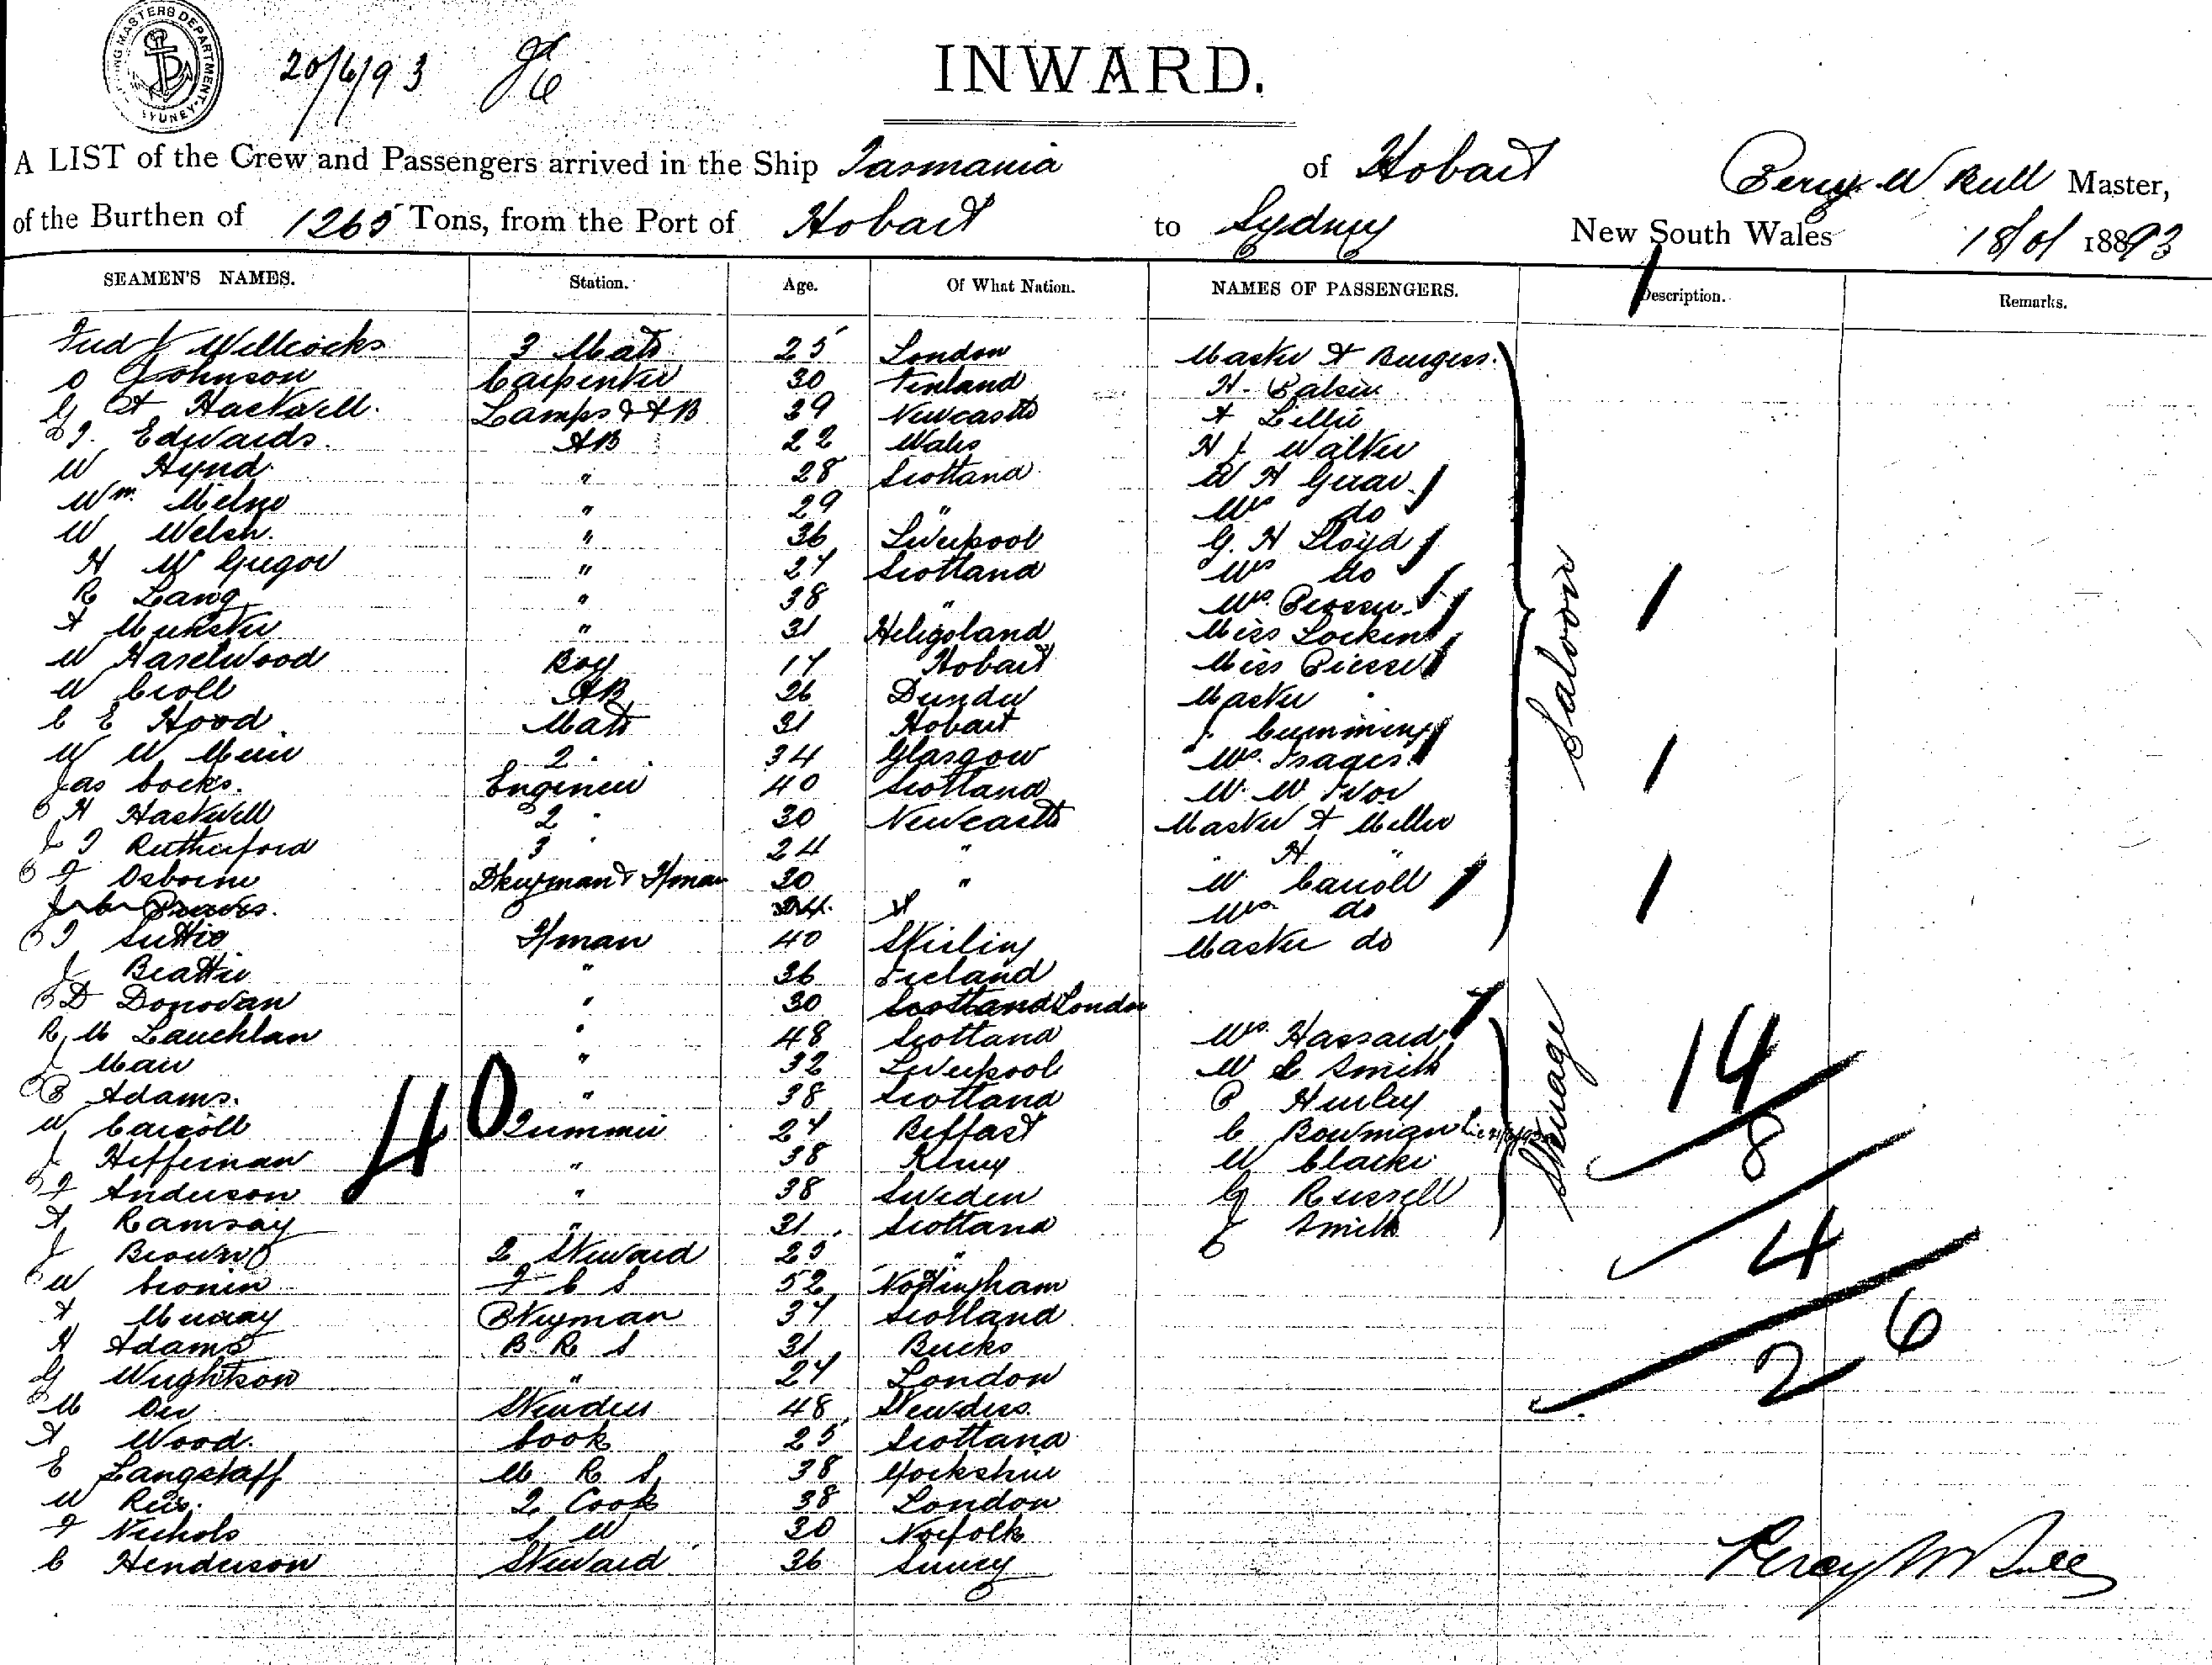 SHIPPING MASTERS DEPARTMENT SYDNEY
20/6/93
INWARD.
A LIST of the Crew and Passengers arrived in the Ship Tasmania of Hobart Percy W Bull Master,
of the Burthen of 1265 Tons, from the Port of Hobart to Sydney New South Wales 18/6/ 1893
SEAMEN'S NAMES. Station. Age. Of What Nation. NAMES OF PASSENGERS. Description. Remarks.
Fred J Willcocks 3 Mate 25 London Master A Burgess.
O Johnson Carpenter 30 Finland H.
G A Haskwell. Lamps & AB 39 Newcastle A Lillie
Edwards. AB 22 Wales H J Walker
W Hynd. " 28 Scotland W H
Wm. Milne " 29 " Mrs do
W Welsh. " 36 Liverpool G. H Lloyd
H Mc Gregor " 27 Scotland Mrs do
R Lang " 38 " Mrs.
A Munster " 31 Heligoland Miss
W Haselwood Boy 17 Hobart Miss
W Croll AB 26 Dundee Master "
C E Hood Mate 31 Hobart J. Cumming
W W Muir 2 " 34 Glasgow Mrs. Isaacs
Jas Cocks. Engineer 40 Scotland W. Mc Ivor
H Haskwell 2 " 30 Newcastle Master A Miller
J T Rutherford 3 " 24 " " H "
F Osborne Dkeyman & F/man 30 " W Carroll
24 Mrs do
T Suttie F/man 40 Stirling Master do
J Beattie " 36 Ireland
D Donovan " 30 Scotland London
R Mc Lauchlan " 48 Scotland Mrs Hassard
J Mair " 32 Liverpool W C Smith
B Adams. " 38 Scotland P Hurley
W Carroll Trimmer 27 Belfast C Bowman
J Heffernan " 38 Kerry W Clarke
F Anderson " 38 Sweden G Russell
A Ramsay " 31 Scotland J Smith
J Brown 2 Steward 25 "
W Cronin F C S 52 Nottingham
A Murray Stkeyman 37 Scotland
H Adams B R S 31 Bucks
G Wightson " 27 London
M Orr Stewdess 48 Stewdess
A Wood. Cook 25 Scotland
E Langstaff M R S 38 Yorkshire
W Reis. 2 Cook 38 London
F Nichols S W 30 Norfolk
C Henderson Steward 36 Surrey
Saloon
Steerage
40
14
8
4
2 6
Percy W Bull